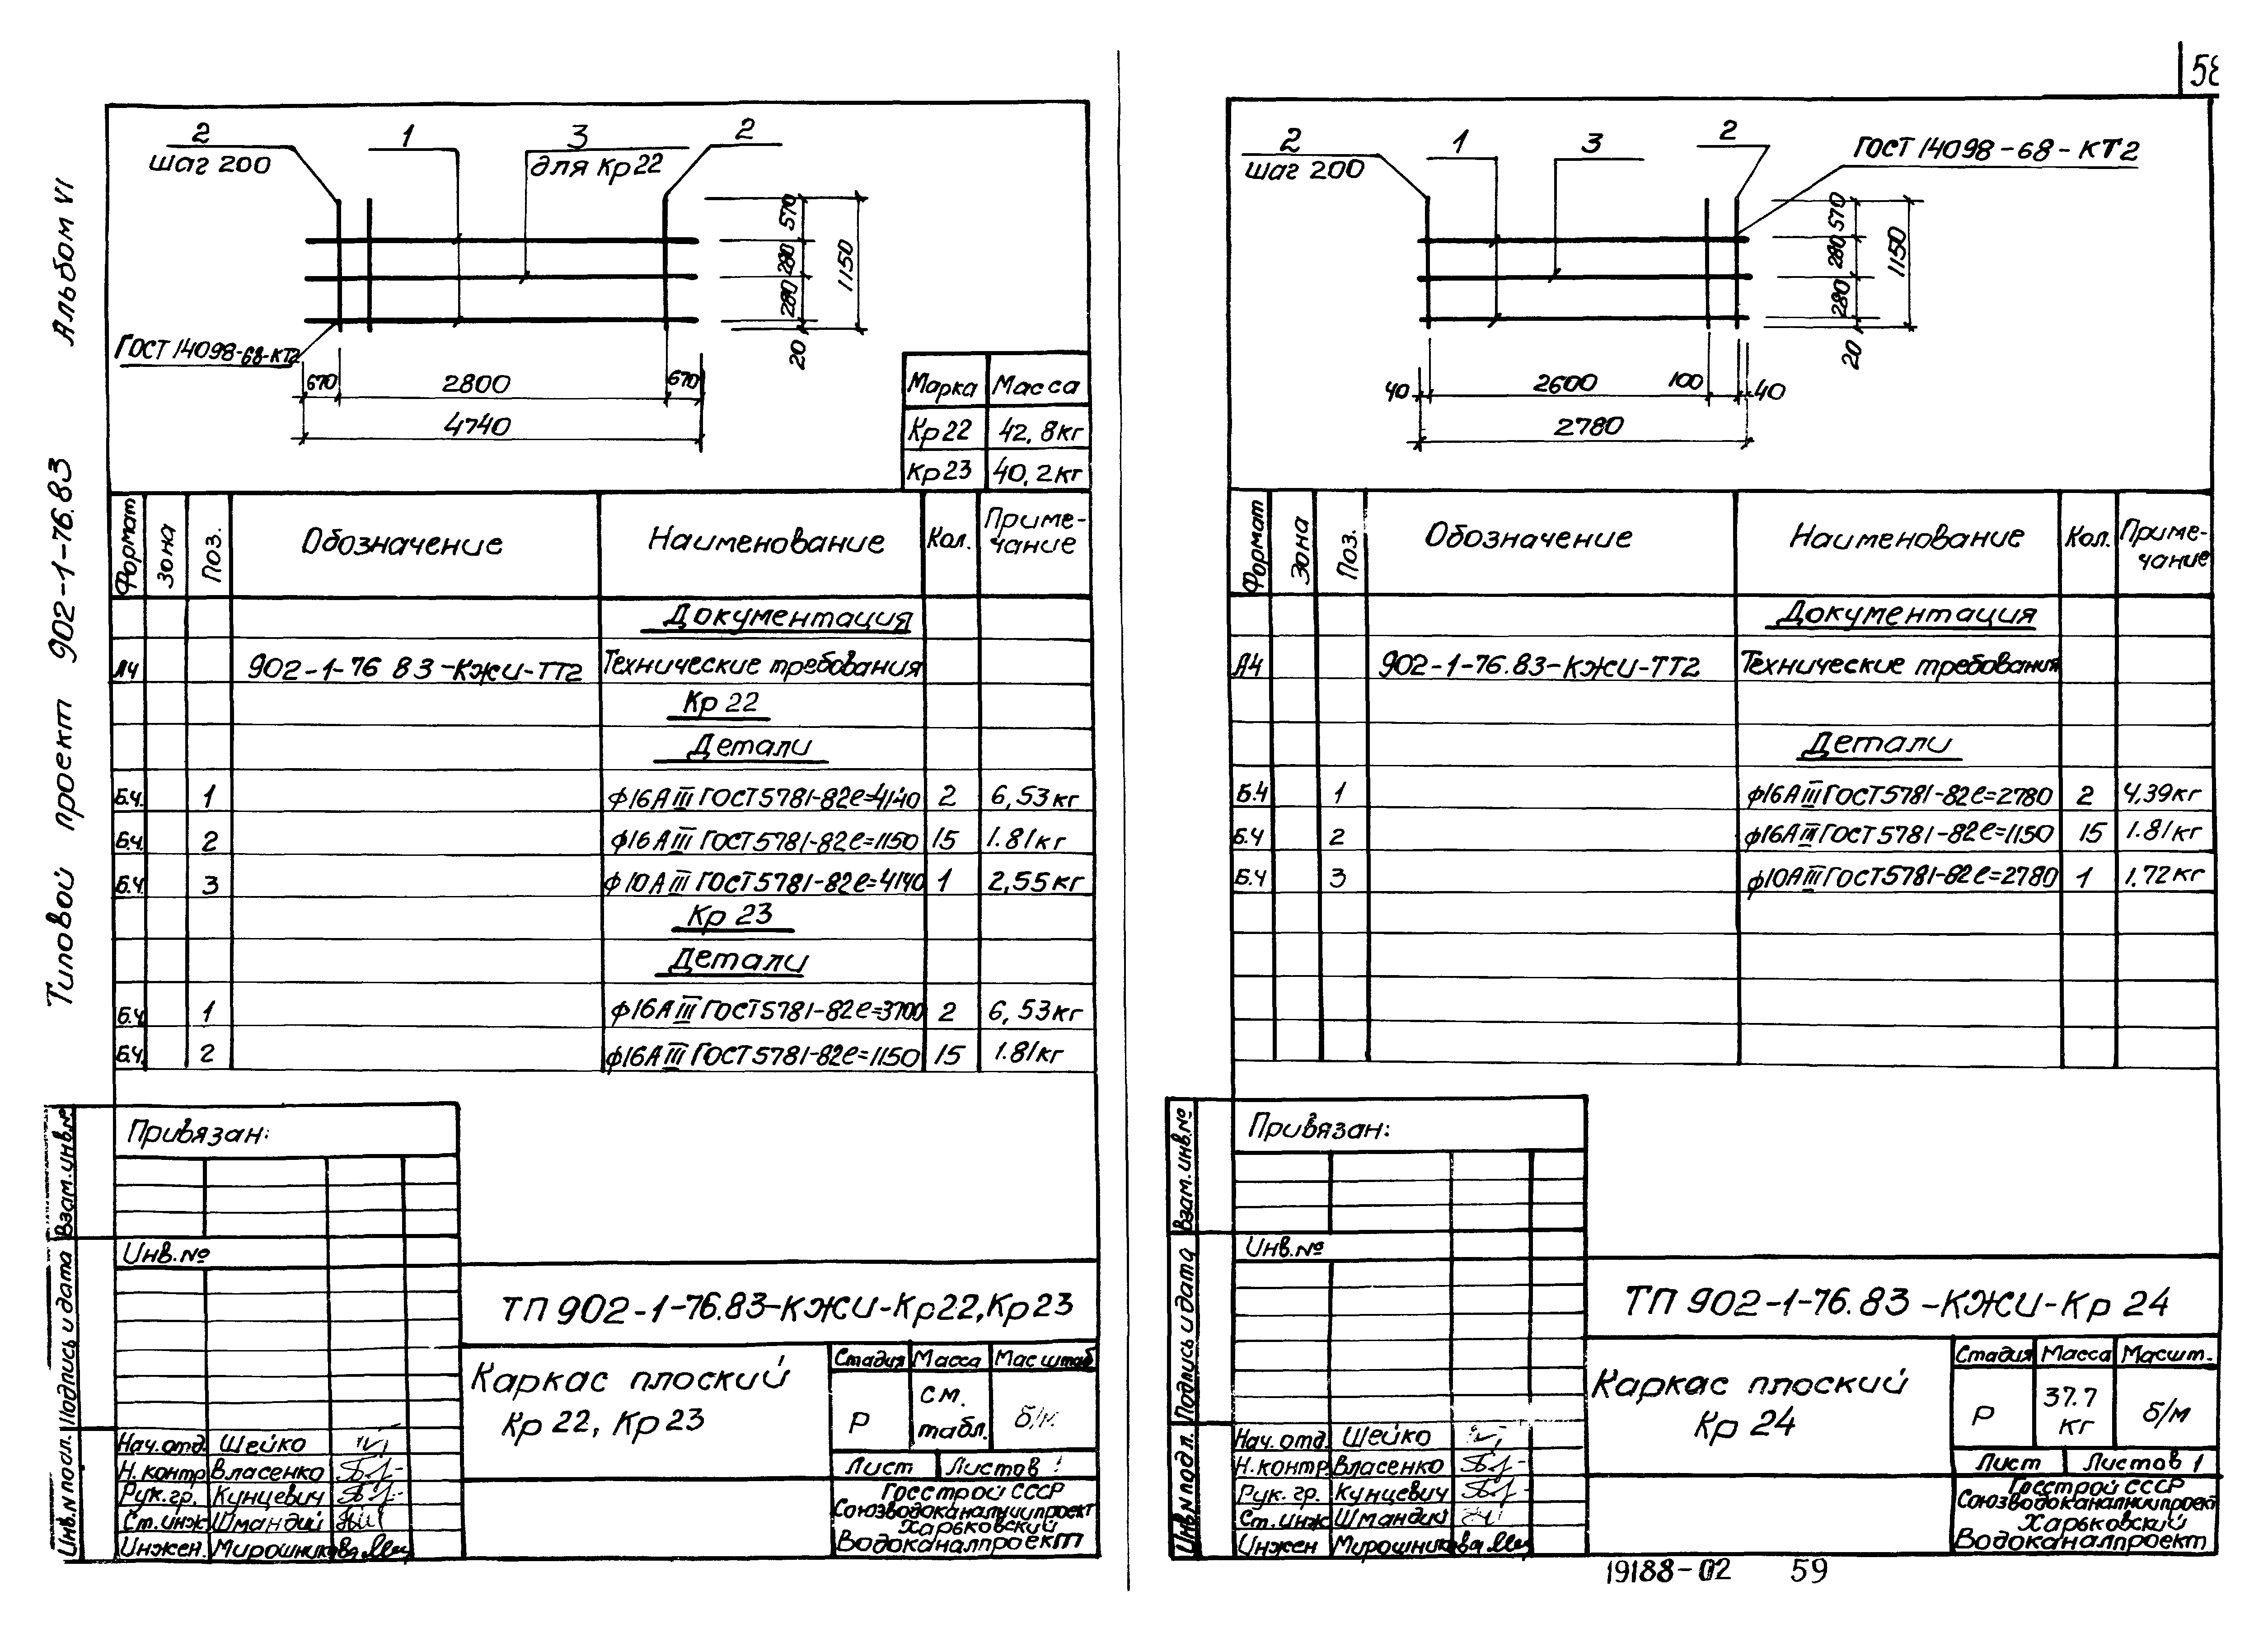 58
Альбом VI
Типовой проект 902-1-76.83
2
шаг 200
1
3
для Кр22
2
570
280
280
20
1150
ГОСТ 14098-68-КТ2
670
2800
670
4740
Марка Масса
Кр22 42,8кг
Кр23 40,2кг
Формат Зона Поз. Обозначение Наименование Кол. Приме-
чание
Документация
А4 902-1-76 83-КЖИ-ТТ2 Технические требования
Кр 22
Детали
Б.ч. 1 ф16АIII ГОСТ5781-82 ℓ=4140 2 6,53кг
Б.ч. 2 ф16АIII ГОСТ5781-82 ℓ=1150 15 1.81кг
Б.ч. 3 ф10АIII ГОСТ5781-82 ℓ=4140 1 2,55кг
Кр 23
Детали
Б.ч. 1 ф16АIII ГОСТ5781-82 ℓ=3700 2 6,53кг
Б.ч. 2 ф16АIII ГОСТ5781-82 ℓ=1150 15 1.81кг
Привязан:
Инв.№
Взам.инв.№
Подпись и дата
Инв.N подл.
ТП 902-1-76.83-КЖИ-Кр22,Кр23
Каркас плоский
Кр 22, Кр 23
Стадия Масса Масштаб
Р см.
табл. б/м
Лист Листов 1
Нач.отд. Шейко
Н.контр Власенко
Рук.гр. Кунцевич
Ст.инж Шмандий
Инжен. Мирошникова
Госстрой СССР
Союзводоканалниипроект
Харьковский
Водоканалпроект
2
шаг 200
1
3
2
ГОСТ 14098-68-КТ2
570
280
280
20
1150
40
2600
100
40
2780
Формат Зона Поз. Обозначение Наименование Кол. Приме-
чание
Документация
А4 902-1-76.83-КЖИ-ТТ2 Технические требования
Детали
Б.ч 1 ф16АIII ГОСТ5781-82 ℓ=2780 2 4,39кг
Б.ч 2 ф16АIII ГОСТ5781-82 ℓ=1150 15 1.81кг
Б.ч 3 ф10АIII ГОСТ5781-82 ℓ=2780 1 1.72кг
Привязан:
Инв.№
Взам.инв.№
Подпись и дата
Инв.N подл.
ТП 902-1-76.83-КЖИ-Кр 24
Каркас плоский
Кр 24
Стадия Масса Масшт.
Р 37.7
кг б/м
Лист Листов 1
Нач.отд. Шейко
Н.контр. Власенко
Рук. гр. Кунцевич
Ст.инж Шмандий
Инжен Мирошникова
Госстрой СССР
Союзводоканалниипроект
Харьковский
Водоканалпроект
19188-02 59